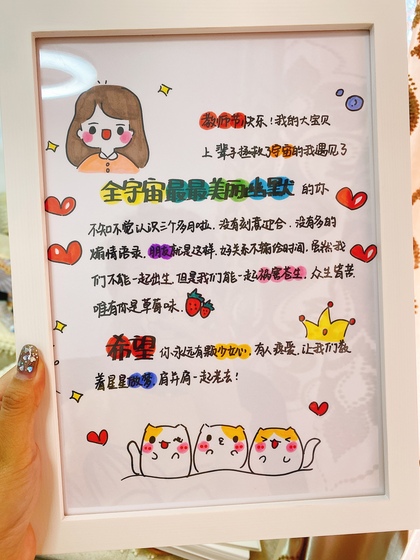 教师节快乐！我的大宝贝
上辈子拯救了宇宙的我遇见了
全宇宙最最美丽幽默的你
不知不觉认识三个多月啦，没有刻意迎合，没有多的
煽情语录，朋友就是这样，好关系不输给时间，虽然我
们不能一起出生，但是我们能一起祸害苍生，众生皆苦
唯有你是草莓味。
希望你永远有颗少女心，有人疼爱，让我们数
着星星做梦，肩并肩一起老去！